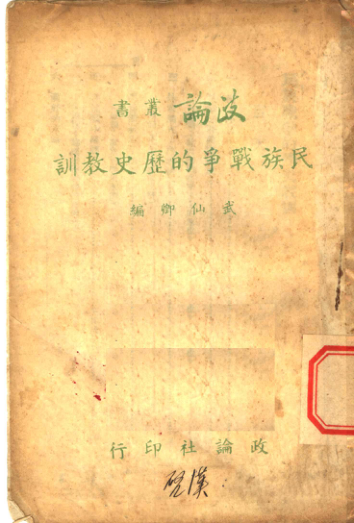 政論叢書
民族戰爭的歷史教訓
武仙卿編
政論社印行